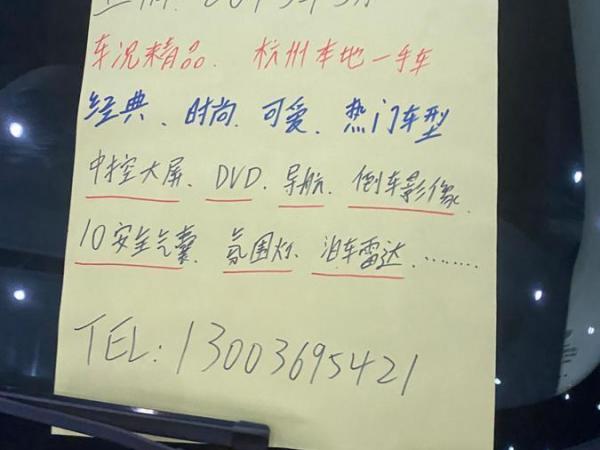 车况精品、杭州本地一手车
经典、时尚、可爱、热门车型
中控大屏、DVD、导航、倒车影像
10安全气囊、氛围灯、泊车雷达、……
TEL:13003695421